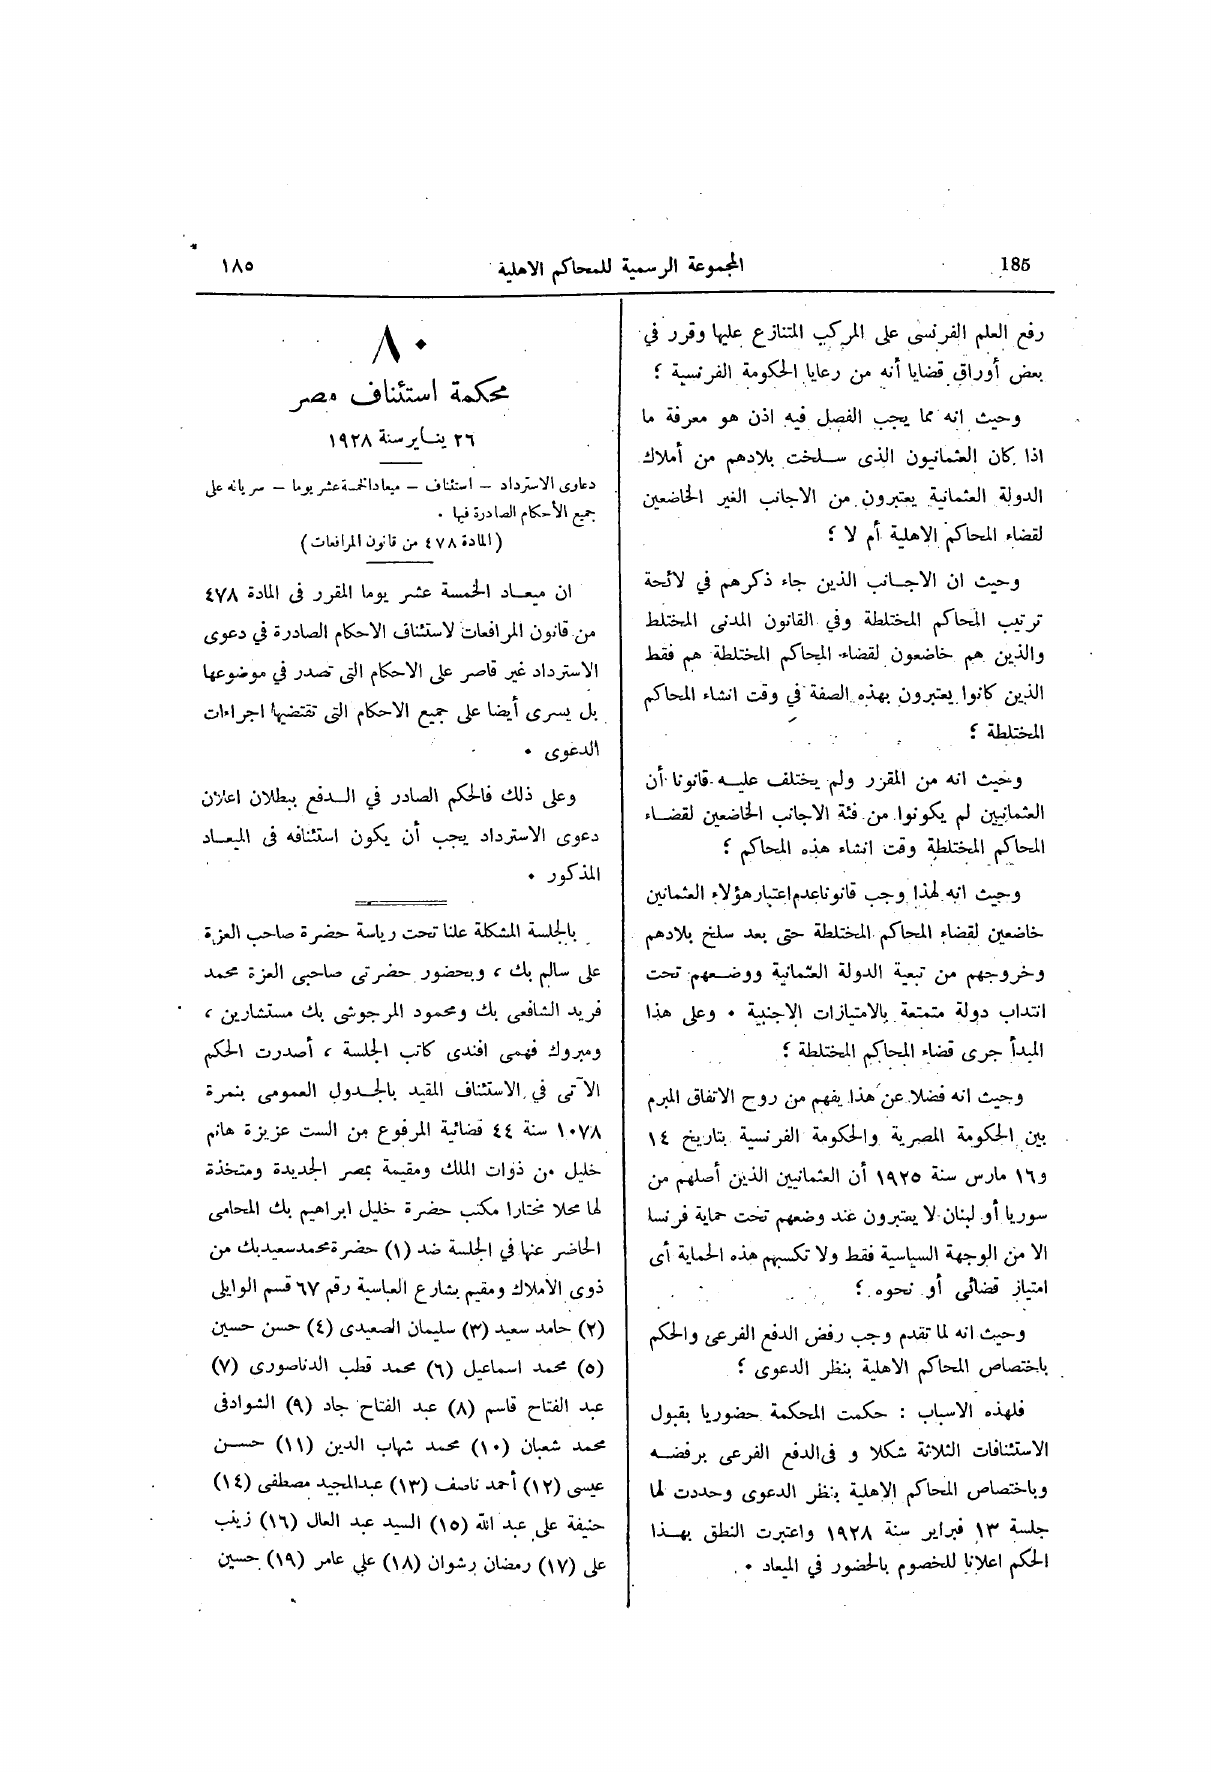 185
المجموعة الرسمية للمحاكم الاهلية
١٨٥
رفع العلم الفرنسى على المركب المتنازع عليها وقرر في
بعض أوراق قضايا أنه من رعايا الحكومة الفرنسية ؛
وحيث انه مما يجب الفصل فيه اذن هو معرفة ما
اذا كان العثمانيون الذى سلخت بلادهم من أملاك
الدولة العثمانية يعتبرون من الاجانب الغير الخاضعين
لقضاء المحاكم الاهلية أم لا ؛
وحيث ان الاجانب الذين جاء ذكرهم في لائحة
ترتيب المحاكم المختلطة وفي القانون المدنى المختلط
والذين هم خاضعون لقضاء المحاكم المختلطة هم فقط
الذين كانوا يعتبرون بهذه الصفة في وقت انشاء المحاكم
المختلطة ؛
وحيث انه من المقرر ولم يختلف عليه قانونا أن
العثمانيين لم يكونوا من فئة الاجانب الخاضعين لقضاء
المحاكم المختلطة وقت انشاء هذه المحاكم ؛
وحيث انه لهذا وجب قانونا عدم اعتبار هؤلاء العثمانين
خاضعين لقضاء المحاكم المختلطة حتى بعد سلخ بلادهم
وخروجهم من تبعية الدولة العثمانية ووضعهم تحت
انتداب دولة متمتعة بالامتيازات الاجنبية ٠ وعلى هذا
المبدأ جرى قضاء المحاكم المختلطة ؛
وحيث انه فضلا عن هذا يفهم من روح الاتفاق المبرم
بين الحكومة المصرية والحكومة الفرنسية بتاريخ ١٤
و١٦ مارس سنة ١٩٢٥ أن العثمانيين الذين أصلهم من
سوريا أو لبنان لا يعتبرون عند وضعهم تحت حماية فرنسا
الا من الوجهة السياسية فقط ولا تكسبهم هذه الحماية أى
امتياز قضائى أو نحوه ؛
وحيث انه لما تقدم وجب رفض الدفع الفرعى والحكم
باختصاص المحاكم الاهلية بنظر الدعوى ؛
فلهذه الاسباب : حكمت المحكمة حضوريا بقبول
الاستئنافات الثلاثة شكلا و فى الدفع الفرعى برفضه
وباختصاص المحاكم الاهلية بنظر الدعوى وحددت لها
جلسة ١٣ فبراير سنة ١٩٢٨ واعتبرت النطق بهذا
الحكم اعلانا للخصوم بالحضور في الميعاد ٠
٨٠
محكمة استئناف مصر
٢٦ يناير سنة ١٩٢٨
دعاوى الاسترداد – استئناف – ميعاد الخمسة عشر يوما – سريانه على
جميع الأحكام الصادرة فيها ٠
(المادة ٤٧٨ من قانون المرافعات)
ان ميعاد الخمسة عشر يوما المقرر فى المادة ٤٧٨
من قانون المرافعات لاستئناف الاحكام الصادرة في دعوى
الاسترداد غير قاصر على الاحكام التى تصدر في موضوعها
بل يسرى أيضا على جميع الاحكام التى تقتضيها اجراءات
الدعوى ٠
وعلى ذلك فالحكم الصادر في الدفع ببطلان اعلان
دعوى الاسترداد يجب أن يكون استئنافه فى الميعاد
المذكور ٠
بالجلسة المشكلة علنا تحت رياسة حضرة صاحب العزة
على سالم بك ، وبحضور حضرتى صاحبى العزة محمد
فريد الشافعى بك ومحمود المرجوشى بك مستشارين ،
ومبروك فهمى افندى كاتب الجلسة ، أصدرت الحكم
الآتى في الاستئناف المقيد بالجدول العمومى بنمرة
١٠٧٨ سنة ٤٤ قضائية المرفوع من الست عزيزة هانم
خليل من ذوات الملك ومقيمة بمصر الجديدة ومتخذة
لها محلا مختارا مكتب حضرة خليل ابراهيم بك المحامى
الحاضر عنها في الجلسة ضد (١) حضرة محمد سعيد بك من
ذوى الأملاك ومقيم بشارع العباسية رقم ٦٧ قسم الوايلى
(٢) حامد سعيد (٣) سليمان الصعيدى (٤) حسن حسين
(٥) محمد اسماعيل (٦) محمد قطب الدناصورى (٧)
عبد الفتاح قاسم (٨) عبد الفتاح جاد (٩) الشوادفى
محمد شعبان (١٠) محمد شهاب الدين (١١) حسن
عيسى (١٢) أحمد ناصف (١٣) عبد المجيد مصطفى (١٤)
حنيفة على عبد الله (١٥) السيد عبد العال (١٦) زينب
على (١٧) رمضان رشوان (١٨) علي عامر (١٩) حسين